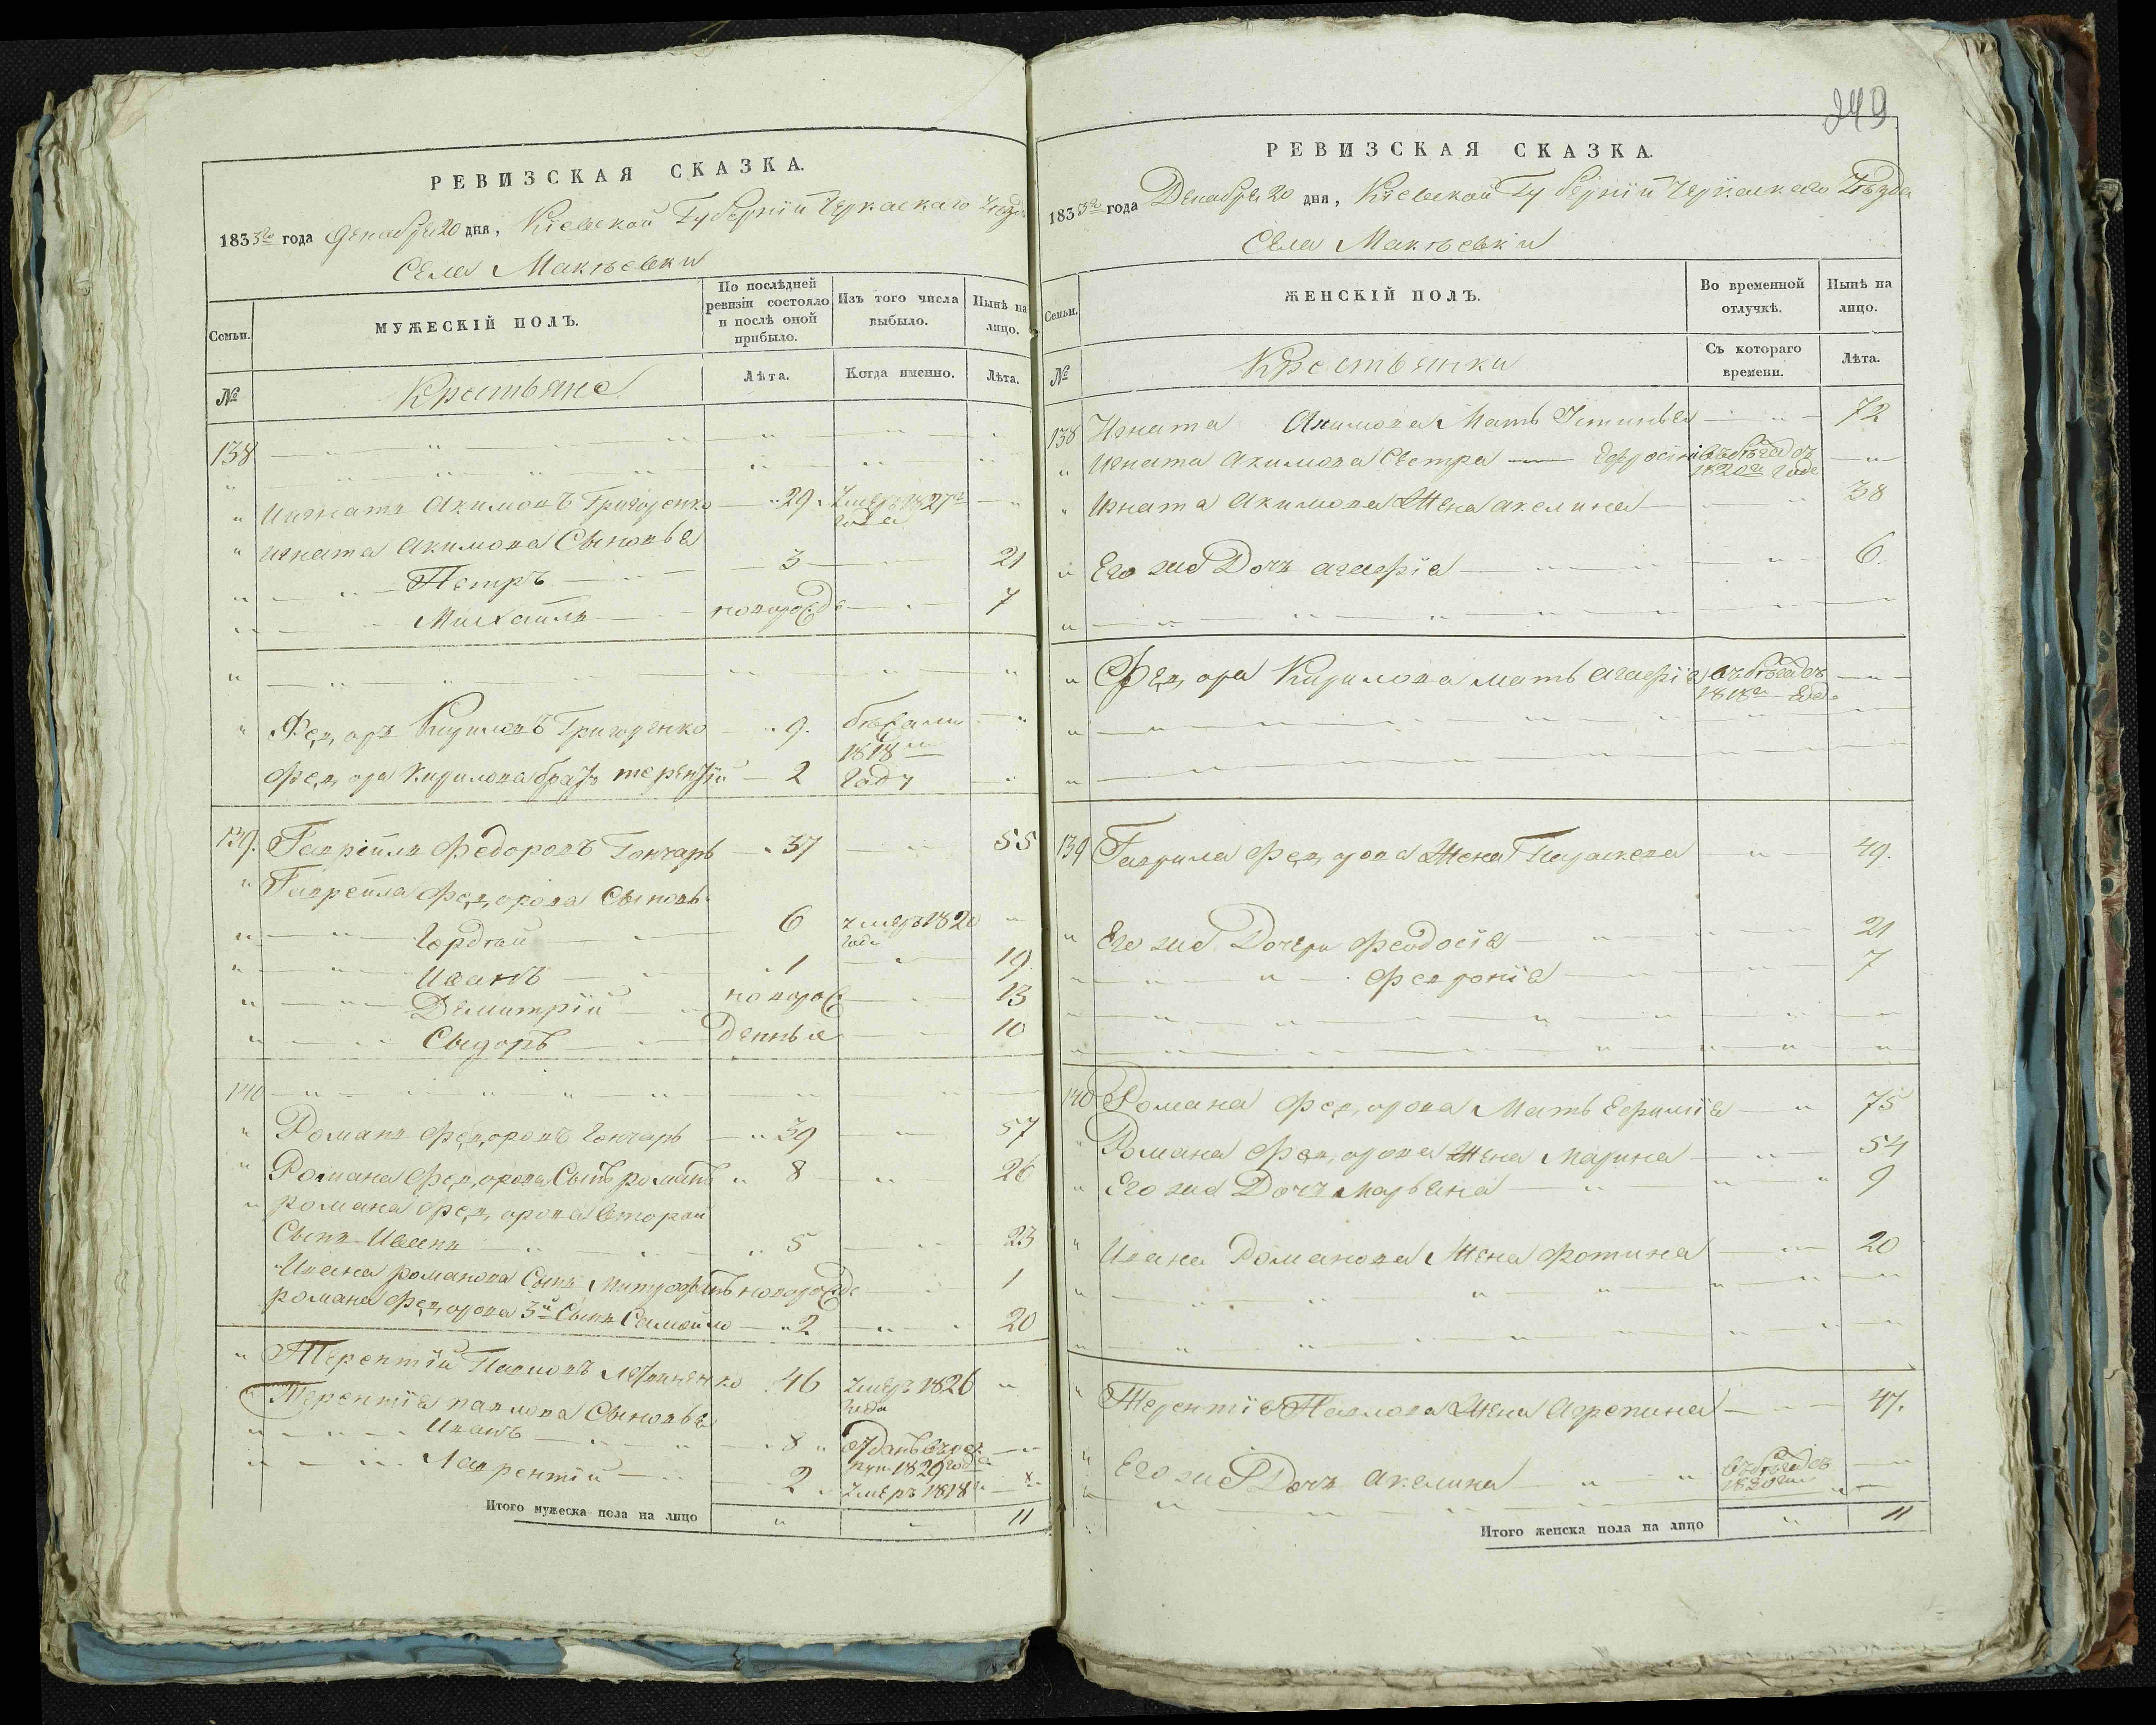 РЕВИЗСКАЯ СКАЗКА.
1833го года Декабря 20 дня, Кіевской Губерніи Черкаскаго Уезда
Села Макѣевки
Семьи.
МУЖЕСКІЙ ПОЛЪ.
По послѣдней ревизіи состояло и послѣ оной прибыло.
Изъ того числа выбыло.
Нынѣ на лицо.
№
Крестьяне
Лѣта.
Когда именно.
Лѣта.
138
Игнатъ Акимовъ Григоренко 29 Умеръ 1827го года
Игната Акимова Сыновья
Петръ 3 21
Михаилъ новорожде 7
Федоръ Кириловъ Григоренко 9. бѣжали
1818м
Федора Кирилова братъ терентій 2 Году
139. Гаврійлъ Федоровъ Гончаръ 37 55
Гаврейла Федорова Сыновь
Гордѣй 6 умеръ 1820 года
Иванъ 1 19
Демитрій новорож 13
Сыдоръ денные 10
140
Романъ Федоровъ Гончаръ 39 57
Романа Федорова Сынъ романъ 8 26
романа Федорова второй
Сынъ Иванъ 5 23
Ивана романова Сынъ Митрофанъ новорожде 1
романа Федорова 3й Сынъ Самойло 2 20
Терентій Павловъ 46 умеръ 1826 года
Терентія павлова Сыновья
Иванъ 8 Отданъ врек
рути 1829 года
Лаврентій 2 умеръ 1818
Итого мужеска пола на лицо 11
249
РЕВИЗСКАЯ СКАЗКА.
1833го года Декабря 20 дня, Кіевской Губерніи Черкаскаго Уѣзда
Села Макѣевки
Семьи.
ЖЕНСКІЙ ПОЛЪ.
Во временной отлучкѣ.
Нынѣ на лицо.
№
Крестьянки
Съ котораго времени.
Лѣта.
138 Игната Акимова Мать Устинья 72
Игната Акимова Сестра Ефросинія въбѣгахъ
1820 года
Игната Акимова Жена акелина 38
Его же Дочь агафія 6.
Федора Кирилова мать агафія въбѣгахъ
1818 год
139 Гаврила Федорова Жена Параскева 49.
Его же Дочери Феодосія 21
Февронія 7
140 Романа Федорова Мать Ефимія 75
Романа Федорова Жена Марина 54
Его же Дочь Марьяна 9
Ивана Романова Жена Фотина 20
Терентія Павлова Жена Агрепина 47.
Его же Дочь акелина въбѣгахъ
1820
Итого женска пола на лицо 11